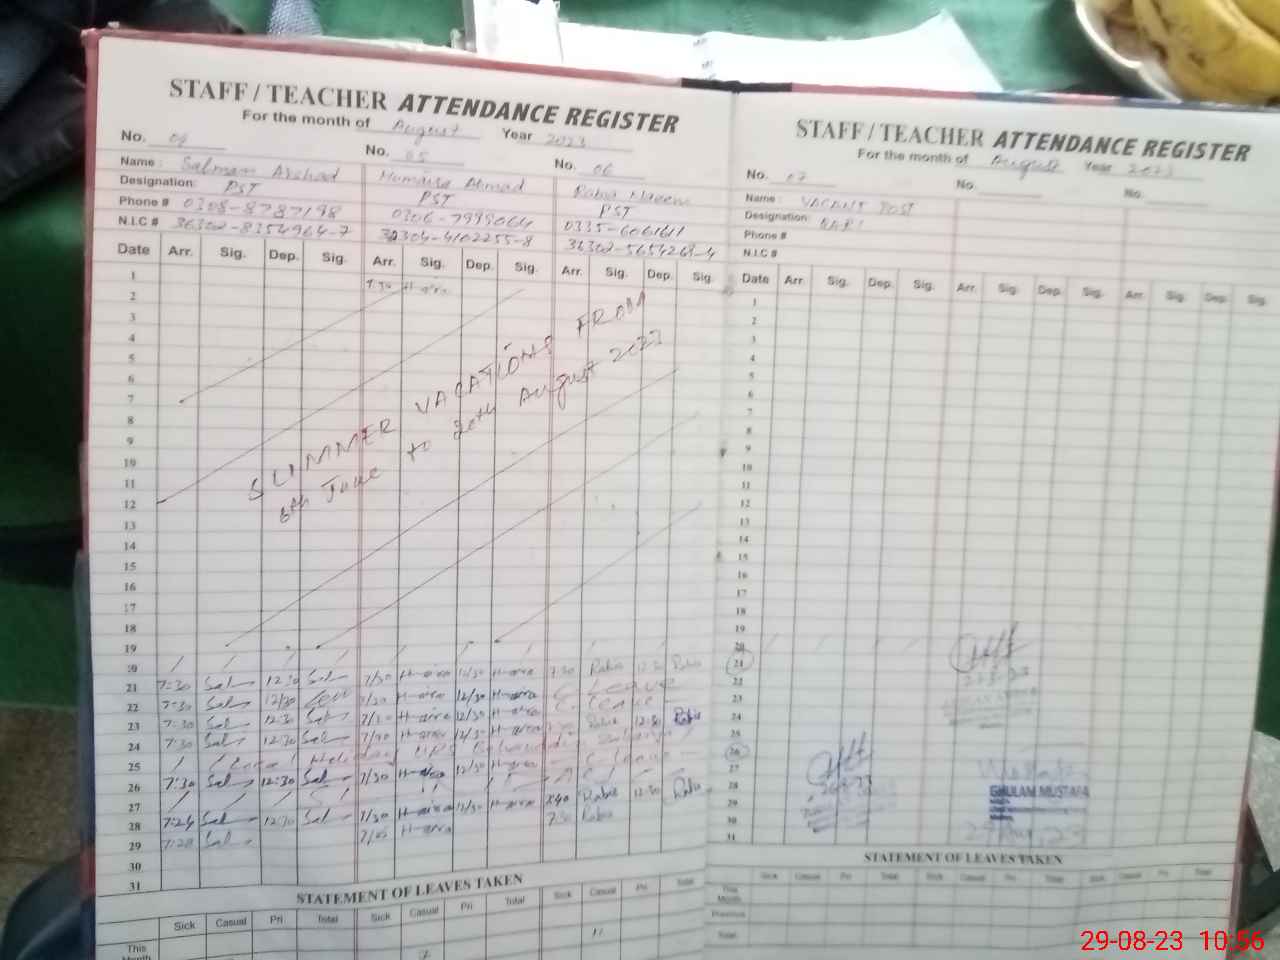 STAFF / TEACHER ATTENDANCE REGISTER
For the month of August Year 2023
No. 04 No. 05 No. 06
Name : Salman Arshad Humaira Ahmad Rabia Naeem
Designation: PST PST PST
Phone # 0308-8787198 0335-6061611
N.I.C # 36302-8354964-7
Date Arr. Sig. Dep. Sig. Arr. Sig. Dep. Sig. Arr. Sig. Dep. Sig.
1 7:30
2
3
4
5
6
7
8
9
10
11
12
13
14
15
16
17
18
19
SUMMER VACATIONS FROM
6th June to 20th August 2023
20
21 7:30 Sal 12:30 Sal 7/30 H-aira 12/30 H-aira 7:30 Rabia 12:30 Rabia
22 7:30 Sal 12/30 7/30 H-aira 12/30 H-aira C. Leave
23 7:30 Sal 12:30 Sal 7/30 H-aira 12/30 H-aira C. Leave
24 7:30 Sal 12:30 Sal 7/30 H-aira 12/30 H-aira Rabia 12:30 Rabia
25 Local Holiday
26 7:30 Sal 12:30 Sal 7/30 H-aira 12/30 H-aira C. Leave
27
28 7:24 Sal 12:30 Sal 7/30 H-aira 12/30 H-aira Rabia 12:30 Rabia
29 7:28 Sal H-aira 7:30 Rabia
30
31
STATEMENT OF LEAVES TAKEN
Sick Casual Pri Total Sick Casual Pri Total Sick Casual Pri Total
This
Month
STAFF / TEACHER ATTENDANCE REGISTER
For the month of August Year 2023
No. 07 No. No.
Name : VACANT POST
Designation:
Phone #
N.I.C #
Date Arr. Sig. Dep. Sig. Arr. Sig. Dep. Sig. Arr. Sig. Dep. Sig.
1
2
3
4
5
6
7
8
9
10
11
12
13
14
15
16
17
18
19
20
21
22
23
24
25
26
27
28
29
30
31
GHULAM MUSTAFA
29 Aug, 23
STATEMENT OF LEAVES TAKEN
Sick Casual Pri Total Sick Casual Pri Total Sick Casual Pri Total
This
Month
Previous
Total
29-08-23 10:56